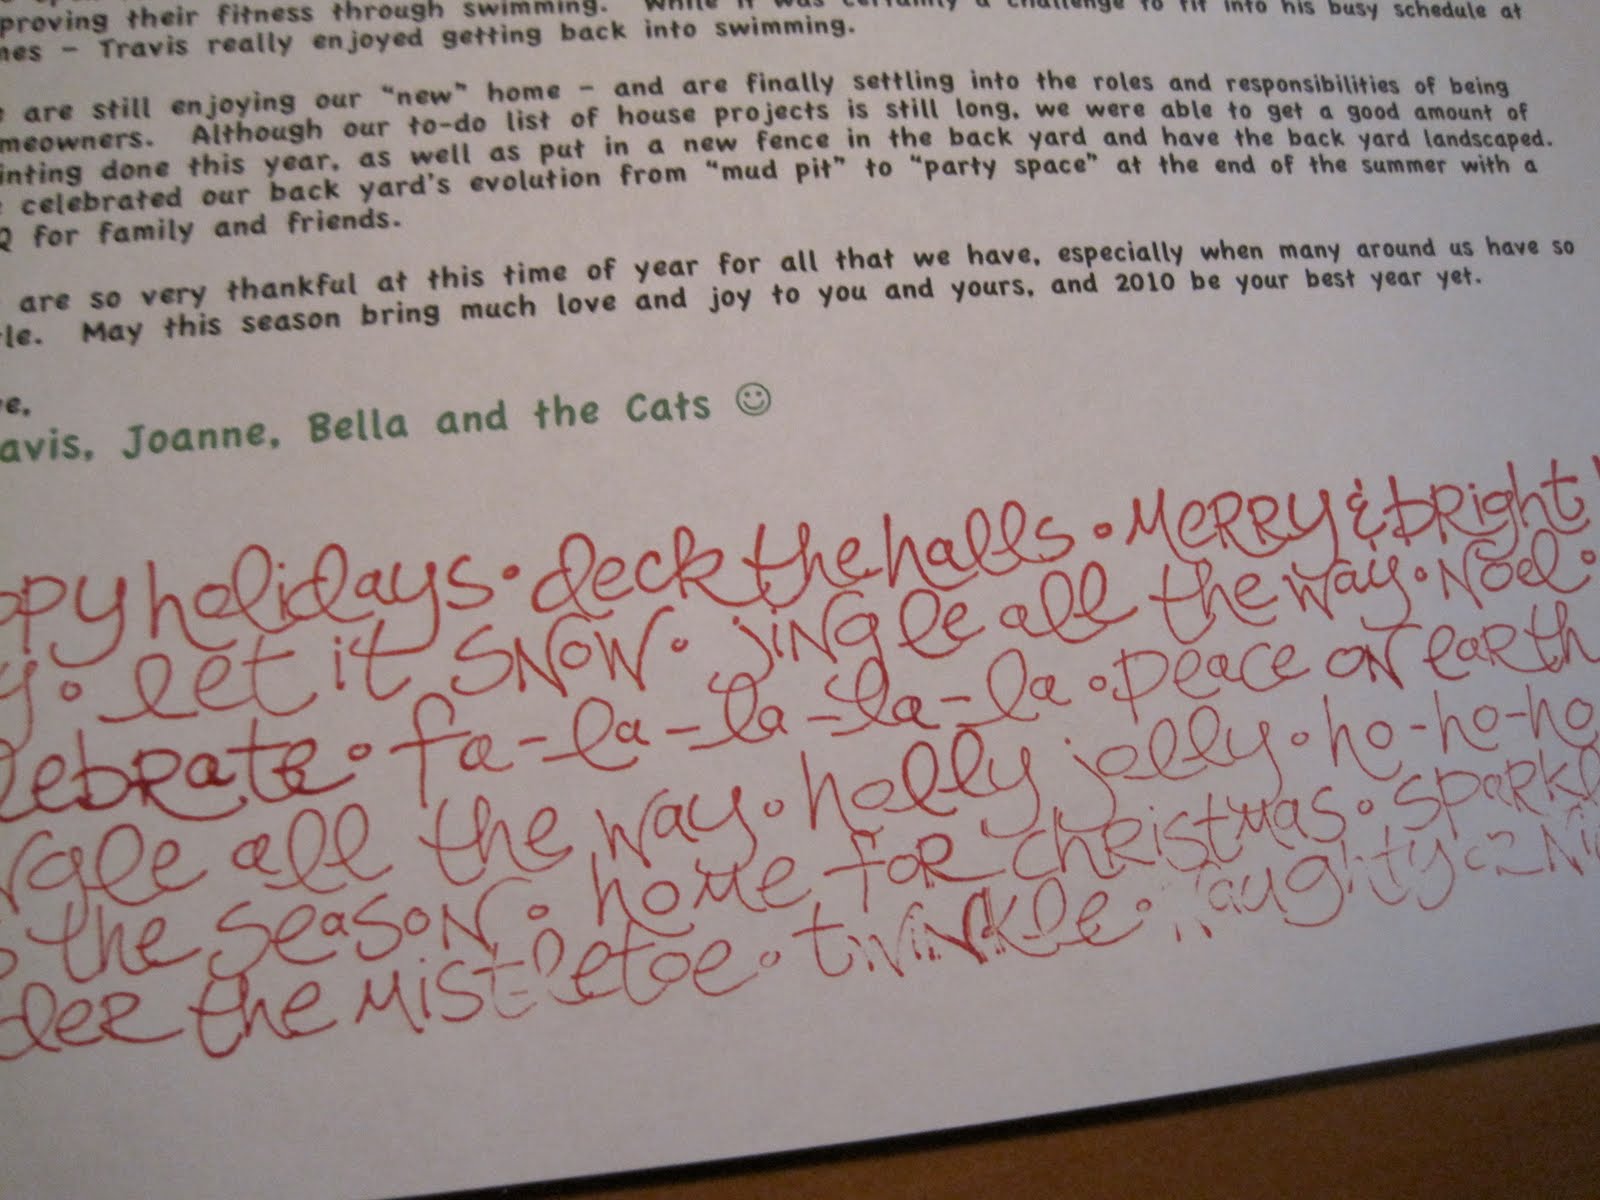 proving their fitness through swimming. While it was certainly a challenge to fit into his busy schedule at
mes – Travis really enjoyed getting back into swimming.
e are still enjoying our “new” home – and are finally settling into the roles and responsibilities of being
meowners. Although our to-do list of house projects is still long, we were able to get a good amount of
inting done this year, as well as put in a new fence in the back yard and have the back yard landscaped.
e celebrated our back yard’s evolution from “mud pit” to “party space” at the end of the summer with a
Q for family and friends.
are so very thankful at this time of year for all that we have, especially when many around us have so
tle. May this season bring much love and joy to you and yours, and 2010 be your best year yet.
ve,
avis, Joanne, Bella and the Cats ☺
ppy holidays • deck the halls • MeRRy & bRight
y • let it SNOW • jiNgle all the way • Noel •
lebRate • fa-la-la-la-la • peace oN eaRth
Ngle all the way • holly jolly • ho-ho-ho
the SeasoN • hoMe foR chRistMas • spaRkl
deR the Mistletoe • twiNkle • Naughty oR Ni